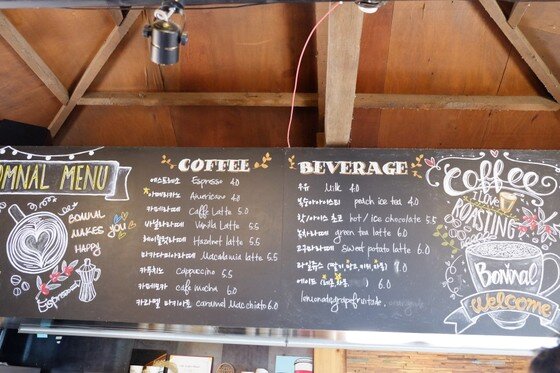 OMNAL MENU
BOMNAL
MAKES YOU
HAPPY
Espresso
COFFEE
에스프레소 Espresso 4.0
아메리카노 Americano 4.0
카페라떼 Caffe Latte 5.0
바닐라라떼 Vanilla Latte 5.5
헤이즐넛라떼 Hazelnut latte 5.5
마카다미아라떼 Macadamia latte 5.5
카푸치노 cappuccino 5.5
카페모카 cafe mocha 6.0
카라멜 마키아토 caramel Macchiato 6.0
BEVERAGE
우유 Milk 4.0
복숭아아이스티 peach ice tea 4.0
핫/아이스 초코 hot / ice chocolate 5.5
녹차라떼 green tea latte 6.0
고구마라떼 sweet potato latte 6.0
7.0
에이드 6.0
lemonade,grapefruitade,
Coffee
I LOVE
ROASTING
Bomnal
Welcome